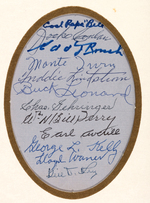 Cool Papa Bell
Jocko Conlan
Edd J Roush
Monte Irvin
Freddie Lindstrom
Buck Leonard
Chas. Gehringer
Wm (Bill) Terry
Earl Averill
George L. Kelly
Lloyd Waner